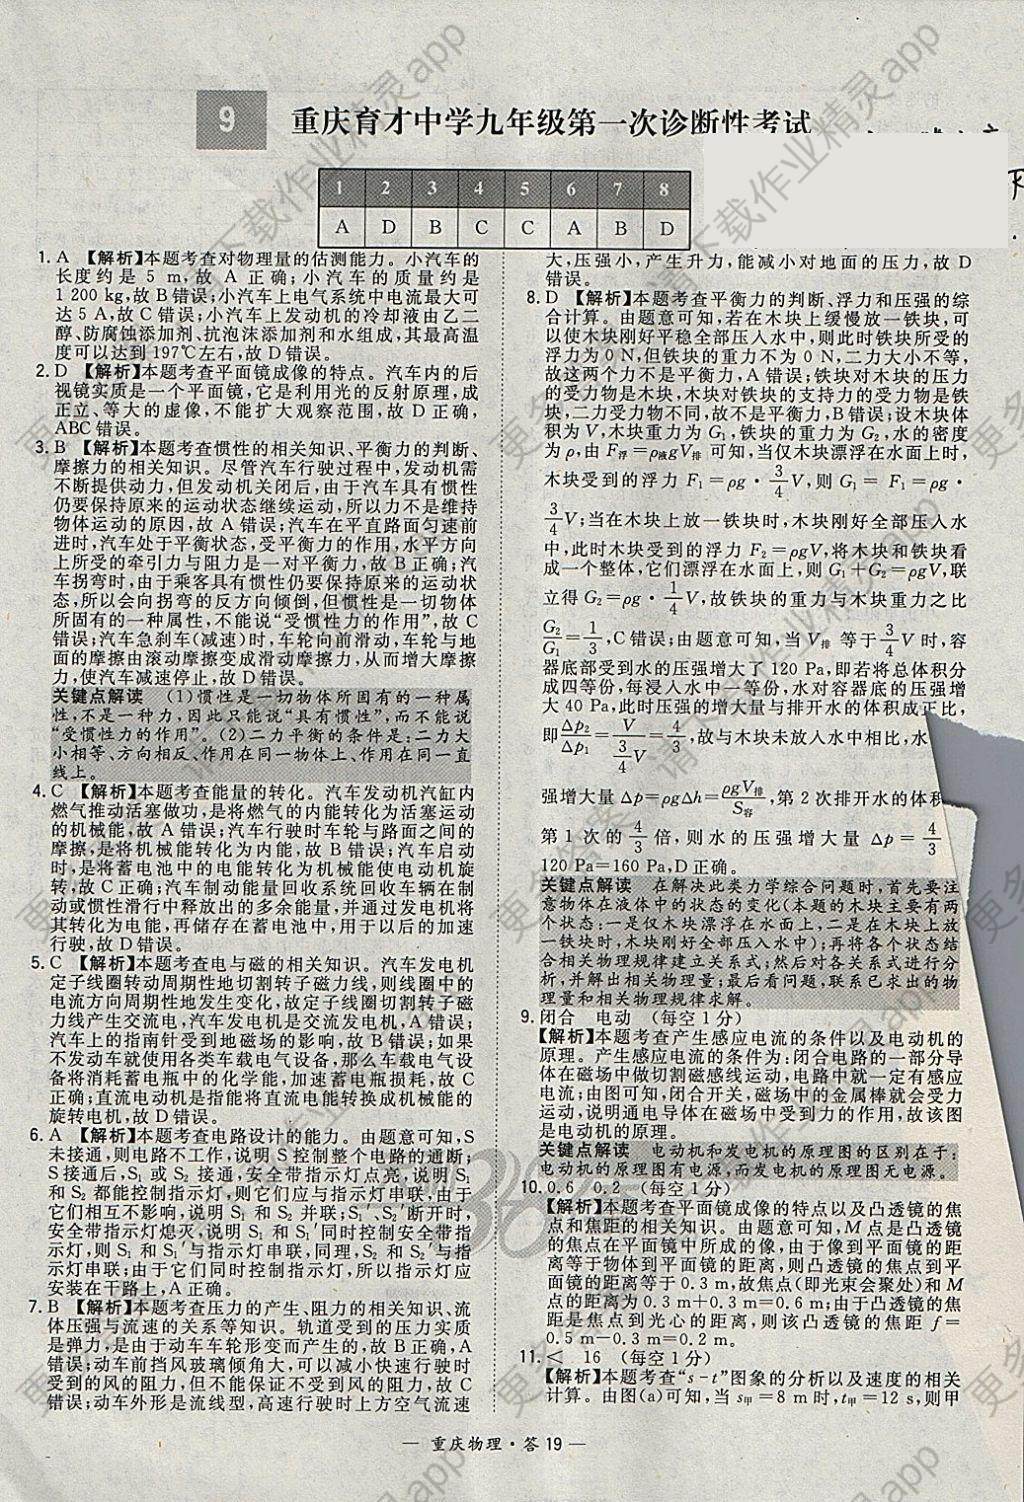 9 重庆育才中学九年级第一次诊断性考试
1 2 3 4 5 6 7 8
A D B C C A B D
1. A 【解析】本题考查对物理量的估测能力。小汽车的
长度约是 5 m,故 A 正确;小汽车的质量约是
1 200 kg,故 B 错误;小汽车上电气系统中电流最大可
达 5 A,故 C 错误;小汽车上发动机的冷却液由乙二
醇、防腐蚀添加剂、抗泡沫添加剂和水组成,其最高温
度可以达到 197℃左右,故 D 错误。
2. D 【解析】本题考查平面镜成像的特点。汽车内的后
视镜实质是一个平面镜,它是利用光的反射原理,成
正立、等大的虚像,不能扩大观察范围,故 D 正确,
ABC 错误。
3. B 【解析】本题考查惯性的相关知识、平衡力的判断、
摩擦力的相关知识。尽管汽车行驶过程中,发动机需
不断提供动力,但发动机关闭后,由于汽车具有惯性
仍要保持原来的运动状态继续运动,所以力不是维持
物体运动的原因,故 A 错误;汽车在平直路面匀速前
进时,汽车处于平衡状态,受平衡力的作用,水平方向
上所受的牵引力与阻力是一对平衡力,故 B 正确;汽
车拐弯时,由于乘客具有惯性仍要保持原来的运动状
态,所以会向拐弯的反方向倾倒,但惯性是一切物体
所固有的一种属性,不能说“受惯性力的作用”,故 C
错误;汽车急刹车(减速)时,车轮向前滑动,车轮与地
面的摩擦由滚动摩擦变成滑动摩擦力,从而增大摩擦
力,使汽车减速停止,故 D 错误。
关键点解读 (1)惯性是一切物体所固有的一种属
性,不是一种力,因此只能说“具有惯性”,而不能说
“受惯性力的作用”。(2)二力平衡的条件是:二力大
小相等、方向相反、作用在同一物体上、作用在同一直
线上。
4. C 【解析】本题考查能量的转化。汽车发动机汽缸内
燃气推动活塞做功,是将燃气的内能转化为活塞运动
的机械能,故 A 错误;汽车行驶时车轮与路面之间的
摩擦,是将机械能转化为内能,故 B 错误;汽车启动
时,是将蓄电池中的电能转化为机械能使电动机旋
转,故 C 正确;汽车制动能量回收系统回收车辆在制
动或惯性滑行中释放出的多余能量,并通过发电机将
其转化为电能,再储存在蓄电池中,用于以后的加速
行驶,故 D 错误。
5. C 【解析】本题考查电与磁的相关知识。汽车发电机
定子线圈转动周期性地切割转子磁力线,则线圈中的
电流方向周期性地发生变化,故定子线圈切割转子磁
力线产生交流电,汽车发电机是交流发电机,A 错误;
汽车上的指南针受到地磁场的影响,故 B 错误;如果
不发动车就使用各类车载电气设备,那么车载电气设
备将消耗蓄电瓶中的化学能,加速蓄电瓶损耗,故 C
正确;直流电动机是指能将直流电能转换成机械能的
旋转电机,故 D 错误。
6. A 【解析】本题考查电路设计的能力。由题意可知,S
未接通,则电路不工作,说明 S 控制整个电路的通断;
S 接通后,S₁ 或 S₂ 接通,安全带指示灯点亮,说明 S₁
和 S₂ 都能控制指示灯,则它们应与指示灯串联,由于
它们相互不影响,说明 S₁ 和 S₂ 并联;S₁′、S₂′断开时,
安全带指示灯熄灭,说明 S₁ 和 S₁′同时控制安全带指
示灯,则 S₁ 和 S₁′与指示灯串联,同理,S₂ 和 S₂′与指
示灯串联;由于它们同时控制指示灯,所以指示灯应
安装在干路上,A 正确。
7. B 【解析】本题考查压力的产生、阻力的相关知识、流
体压强与流速的关系等知识。轨道受到的压力实质
是弹力,是由于动车车轮形变而产生的,故 B 正确,A
错误;动车前挡风玻璃倾角大,可以减小快速行驶时
受到的风的阻力,但不能保证不受到风的阻力,故 C
错误;动车外形是流线型,高速行驶时上方空气流速
大,压强小,产生升力,能减小对地面的压力,故 D
错误。
8. D 【解析】本题考查平衡力的判断、浮力和压强的综
合计算。由题意可知,若在木块上缓慢放一铁块,可
以使木块刚好平稳全部压入水中,则此时铁块所受的
浮力为 0 N,但铁块的重力不为 0 N,二力大小不等,
故这两个力不是平衡力,A 错误;铁块对木块的压力
的受力物是木块,木块对铁块的支持力的受力物是铁
块,二力受力物不同,故不是平衡力,B 错误;设木块体
积为 V,木块重力为 G₁,铁块的重力为 G₂,水的密度
为 ρ,由 F浮=ρ液gV排 可知,当仅木块漂浮在水面上时,
木块受到的浮力 F₁=ρg·3/4V,则 G₁=F₁=ρg·
3/4V;当在木块上放一铁块时,木块刚好全部压入水
中,此时木块受到的浮力 F₂=ρgV,将木块和铁块看
成一个整体,它们漂浮在水面上,则 G₁+G₂=ρgV,联
立得 G₂=ρg·1/4V,故铁块的重力与木块重力之比
G₂/G₁=1/3,C 错误;由题意可知,当 V排 等于 3/4V 时,容
器底部受到水的压强增大了 120 Pa,即若将总体积分
成四等份,每浸入水中一等份,水对容器底的压强增
大 40 Pa,此时压强的增大量与排开水的体积成正比,
即 Δp₂/Δp₁=V/(3/4V)=4/3,故与木块未放入水中相比,水
强增大量 Δp=ρgΔh=ρgV排/S容,第 2 次排开水的体积
第 1 次的 4/3 倍,则水的压强增大量 Δp=4/3
120 Pa=160 Pa,D 正确。
关键点解读 在解决此类力学综合问题时,首先要注
意物体在液体中的状态的变化(本题的木块主要有两
个状态:一是仅木块漂浮在水面上,二是在木块上放
一铁块时,木块刚好全部压入水中);再将各个状态结
合相关物理规律建立关系式;然后对各关系式进行分
析,并解出相关物理量;最后看问题,联系已求出的物
理量和相关物理规律求解。
9. 闭合 电动 (每空 1 分)
【解析】本题考查产生感应电流的条件以及电动机的
原理。产生感应电流的条件为:闭合电路的一部分导
体在磁场中做切割磁感线运动,电路中就一定有感应
电流;由图可知,闭合开关,磁场中的金属棒就会受力
运动,说明通电导体在磁场中受到力的作用,故该图
是电动机的原理。
关键点解读 电动机和发电机的原理图的区别在于:
电动机的原理图有电源,而发电机的原理图无电源。
10. 0.6 0.2 (每空 1 分)
【解析】本题考查平面镜成像的特点以及凸透镜的焦
点和焦距的相关知识。由题意可知,M 点是凸透镜
的焦点在平面镜中所成的像,由于像到平面镜的距
离等于物体到平面镜的距离,则凸透镜的焦点到平
面镜的距离等于 0.3 m,故焦点(即光束会聚处)和 M
点的距离为 0.3 m+0.3 m=0.6 m;由于凸透镜的焦
距是焦点到光心的距离,则该凸透镜的焦距 f=
0.5 m-0.3 m=0.2 m。
11. < 16 (每空 1 分)
【解析】本题考查“s-t”图象的分析以及速度的相关
计算。由图(a)可知,当 s甲=8 m 时,t甲=12 s,则甲
— 重庆物理·答 19 —